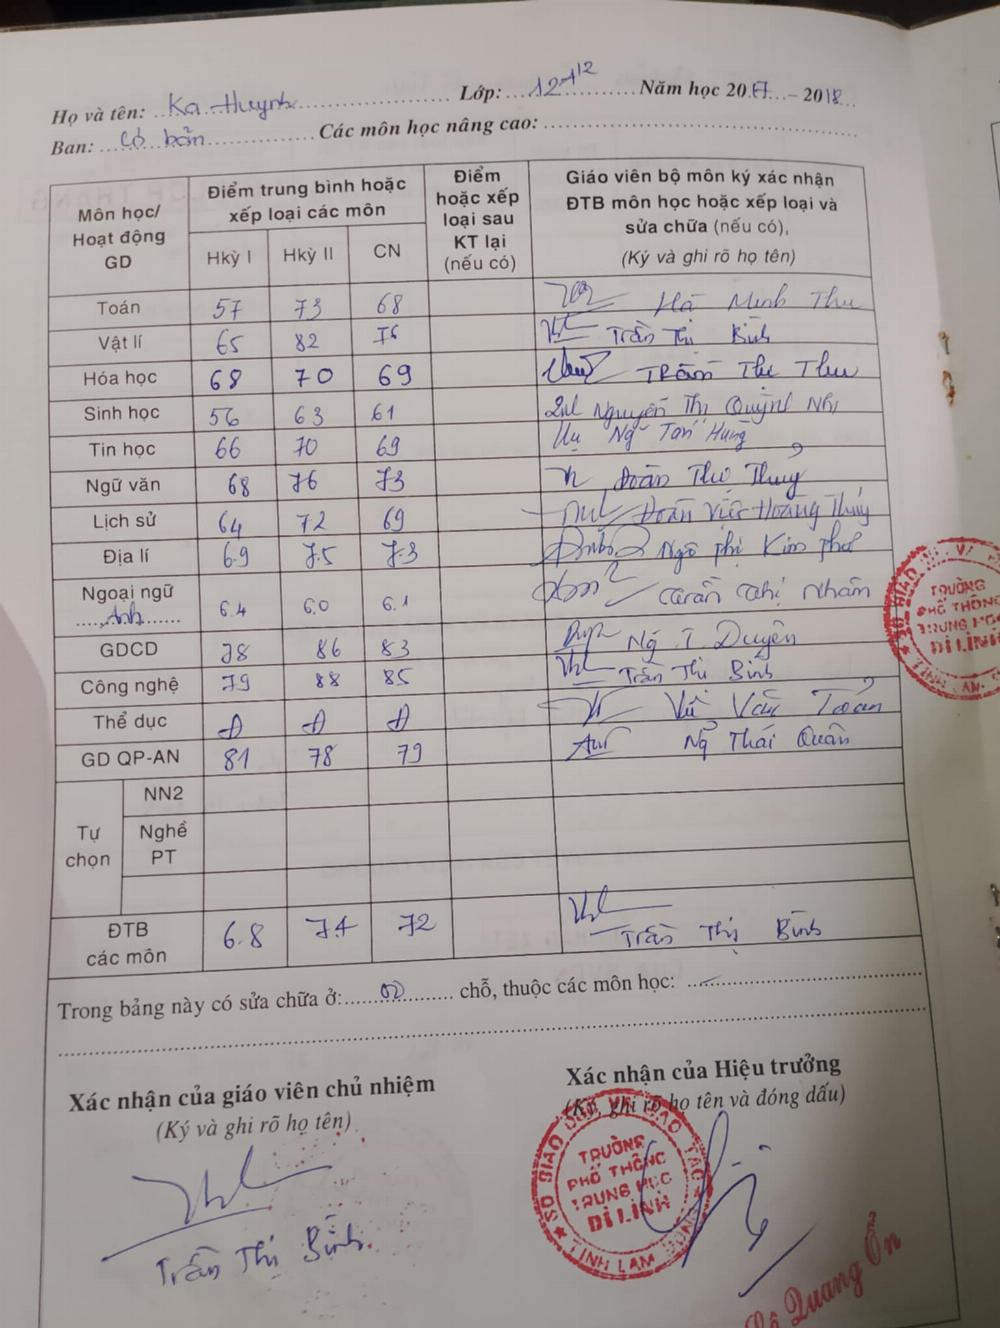 Họ và tên: Ka Huynh Lớp: 12A12 Năm học 2017 - 2018
Ban: Cơ bản Các môn học nâng cao:
Môn học/ Hoạt động GD
Điểm trung bình hoặc xếp loại các môn
Điểm hoặc xếp loại sau KT lại (nếu có)
Giáo viên bộ môn ký xác nhận ĐTB môn học hoặc xếp loại và sửa chữa (nếu có),
(Ký và ghi rõ họ tên)
Hkỳ I Hkỳ II CN
Toán 57 73 68 Hà Minh Thu
Vật lí 65 82 76 Trần Thị Bình
Hóa học 68 70 69 Trần Thu
Sinh học 56 63 61 Nguyễn Thị Quỳnh Nhi
Tin học 66 70 69 Ng Tấn Hưng
Ngữ văn 68 76 73 Đoàn Thu Thủy
Lịch sử 64 72 69 Đoàn Hoàng Thúy
Địa lí 6.9 7.5 7.3 Ngô Thị Kim
Ngoại ngữ
Anh 6.4 6.0 6.1 Trần Thị Nhâm
GDCD 78 86 83 Ng T. Duyên
Công nghệ 79 88 85 Trần Thị Bình
Thể dục Đ Đ Đ Vũ Văn Toản
GD QP-AN 81 78 79 Ng Thái Quân
Tự chọn
NN2
Nghề PT
ĐTB các môn 6.8 7.4 72 Trần Thị Bình
Trong bảng này có sửa chữa ở: 00 chỗ, thuộc các môn học:
Xác nhận của giáo viên chủ nhiệm
(Ký và ghi rõ họ tên)
Trần Thị Bình
Xác nhận của Hiệu trưởng
(Ký, ghi rõ họ tên và đóng dấu)
SỞ GIÁO DỤC VÀ ĐÀO TẠO
TRƯỜNG
PHỔ THÔNG
TRUNG HỌC
DI LINH
TỈNH LÂM ĐỒNG
Quang Ổn
TRƯỜNG
PHỔ THÔNG
TRUNG HỌC
DI LINH